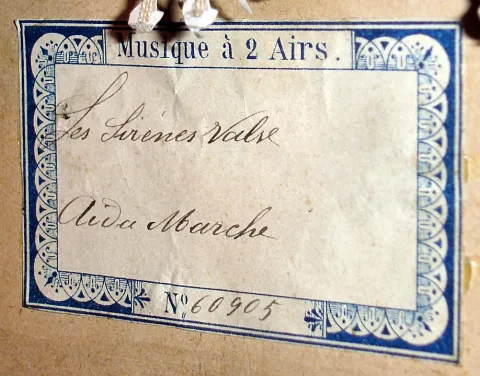 Musique à 2 Airs.
Les Sirènes Valse
Aida Marche
Nº 60905